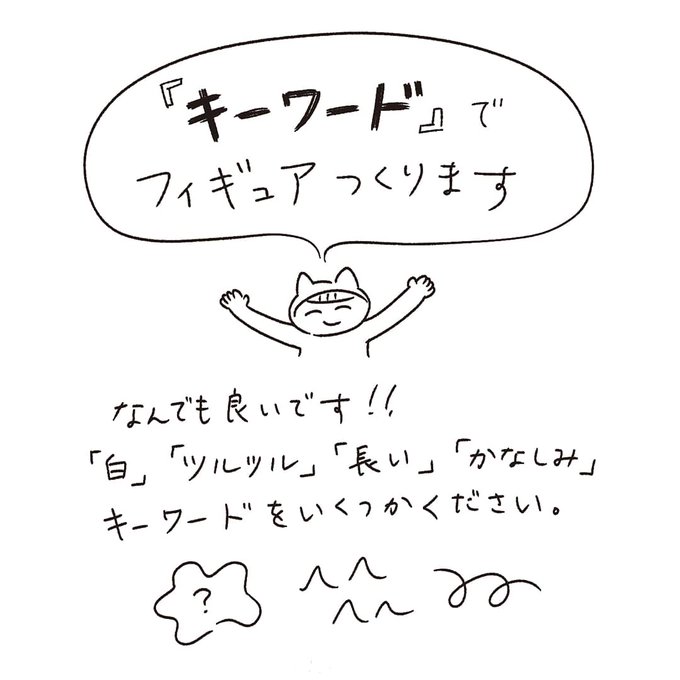 『キーワード』で
フィギュアつくります
なんでも良いです!!
「白」「ツルツル」「長い」「かなしみ」
キーワードをいくつかください。
?